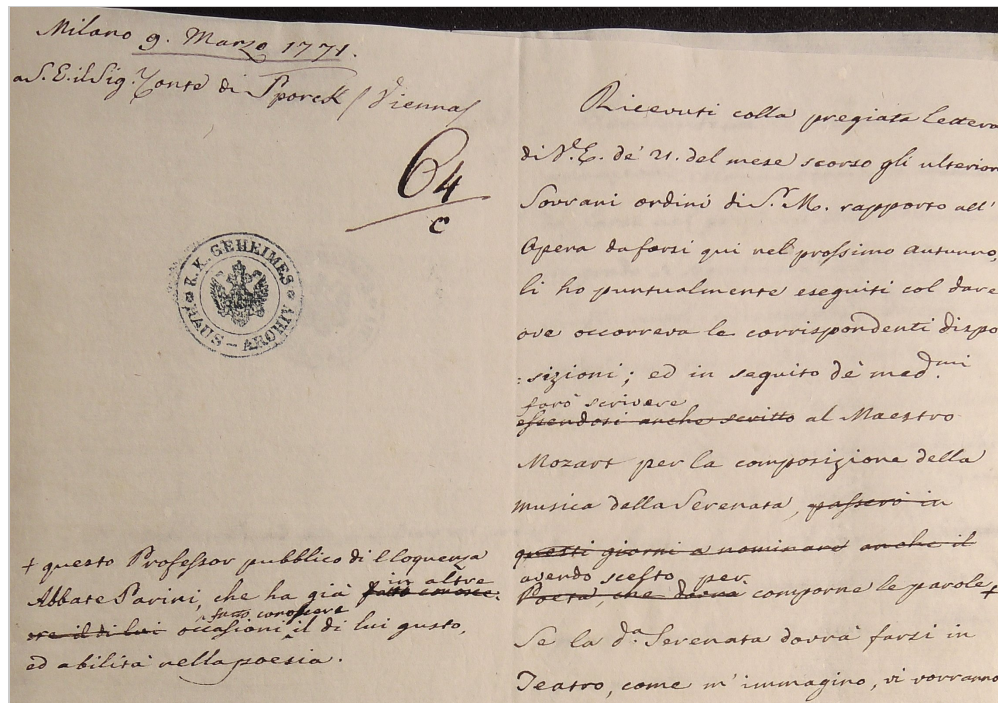 Milano 9. Marzo 1771.
a S. E. il Sig.r Conte di Sporck / Vienna /
64
c
K.K. GEHEIMES
HAUS-ARCHIV
+ questo Professor pubblico di Eloquenza
Abbate Parini, che ha già fatto conosce-
in altre
re il di lui occasioni il di lui gusto,
fatto conoscere
ed abilità nella poesia.
Ricevuti colla pregiata lettera
di V.E. de' 21. del mese scorso gli ulterior
Sovrani ordini di S.M. rapporto all'
Opera da farsi qui nel prossimo autunno,
li ho puntualmente eseguiti col dare
ove occorreva le corrispondenti dispo
:sizioni; ed in seguito de' med.mi
farò scrivere
essendosi anche scritto al Maestro
Mozart per la composizione della
musica della Serenata, passerò in
questi giorni a nominare anche il
avendo scelto per
Poeta, che dovrà comporne le parole +
Se la d.a Serenata dovrà farsi in
Teatro, come m'immagino, vi vorranno